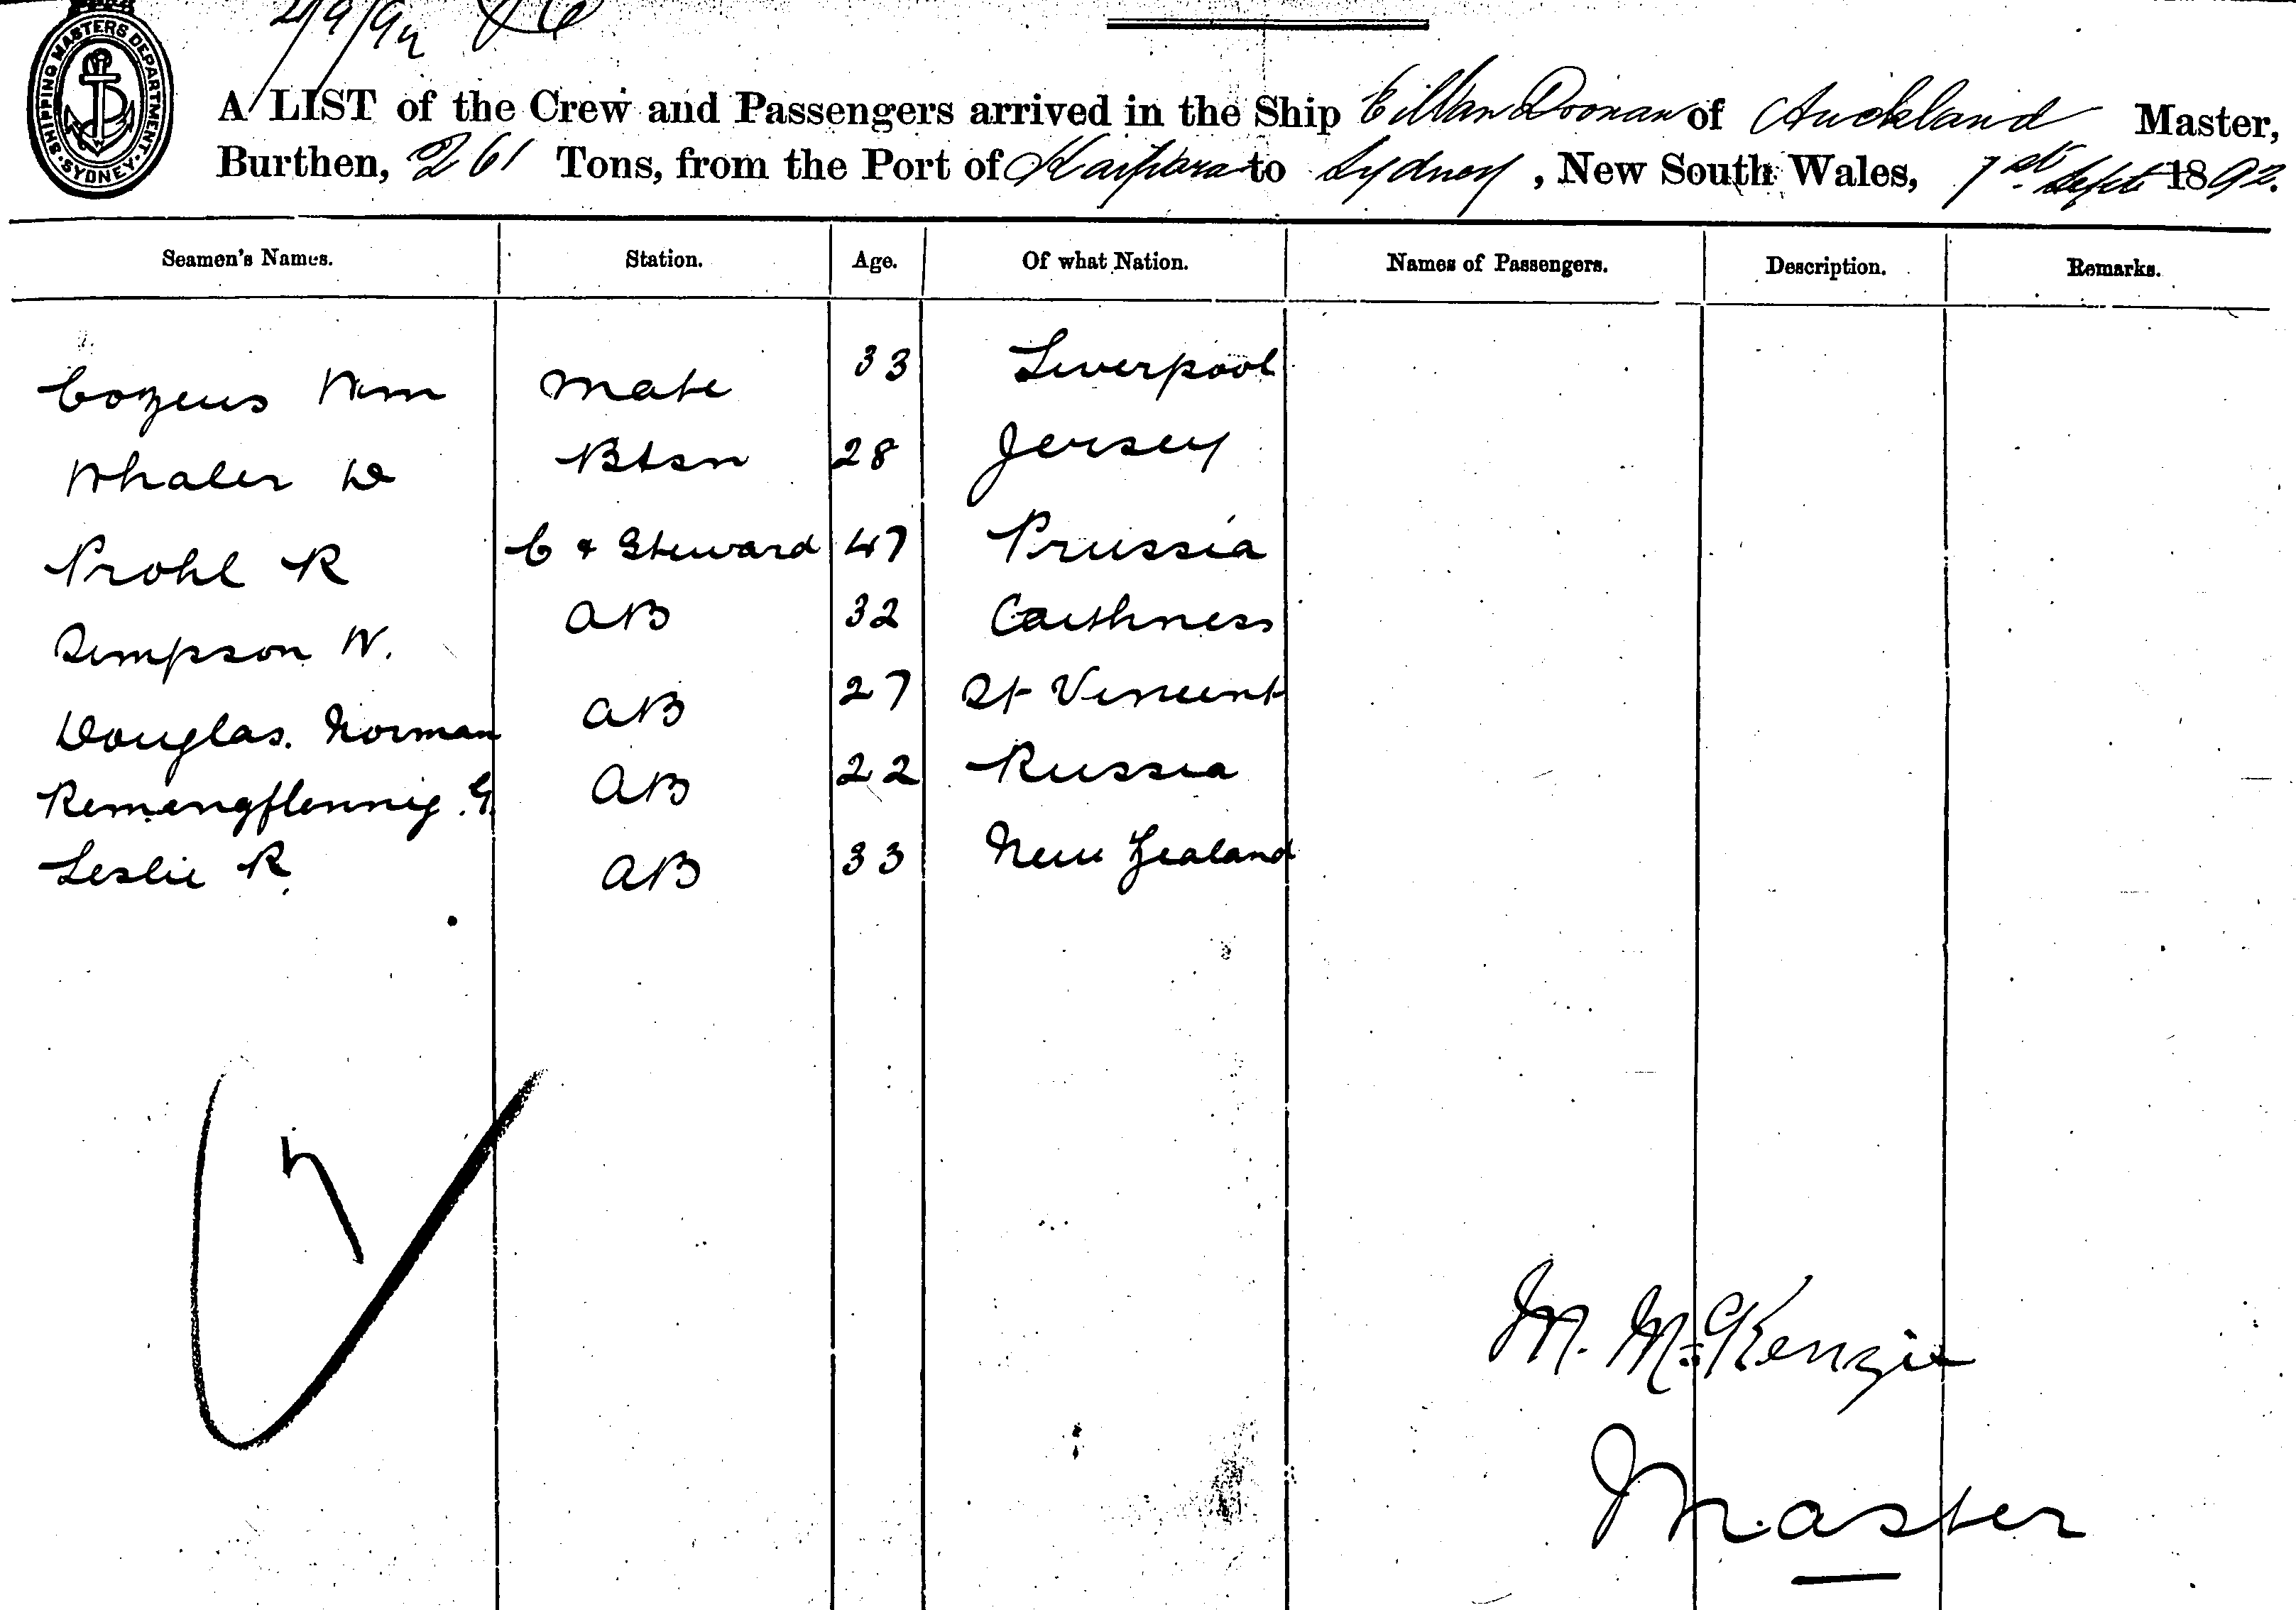 2/9/92
SHIPPING MASTERS DEPARTMENT SYDNEY
A LIST of the Crew and Passengers arrived in the Ship Eillan Doonan of Auckland Master,
Burthen, 261 Tons, from the Port of Kaipara to Sydney, New South Wales, 1st Sept 1892.
Seamen's Names. Station. Age. Of what Nation. Names of Passengers. Description. Remarks.
Cozens Wm Mate 33 Liverpool
Whaler D Btsn 28 Jersey
Prohl R C & Steward 47 Prussia
Simpson W. AB 32 Caithness
Douglas. Norman AB 27 St Vincent
G. AB 22 Russia
Leslie R AB 33 New Zealand
7
M. McKenzie
Master